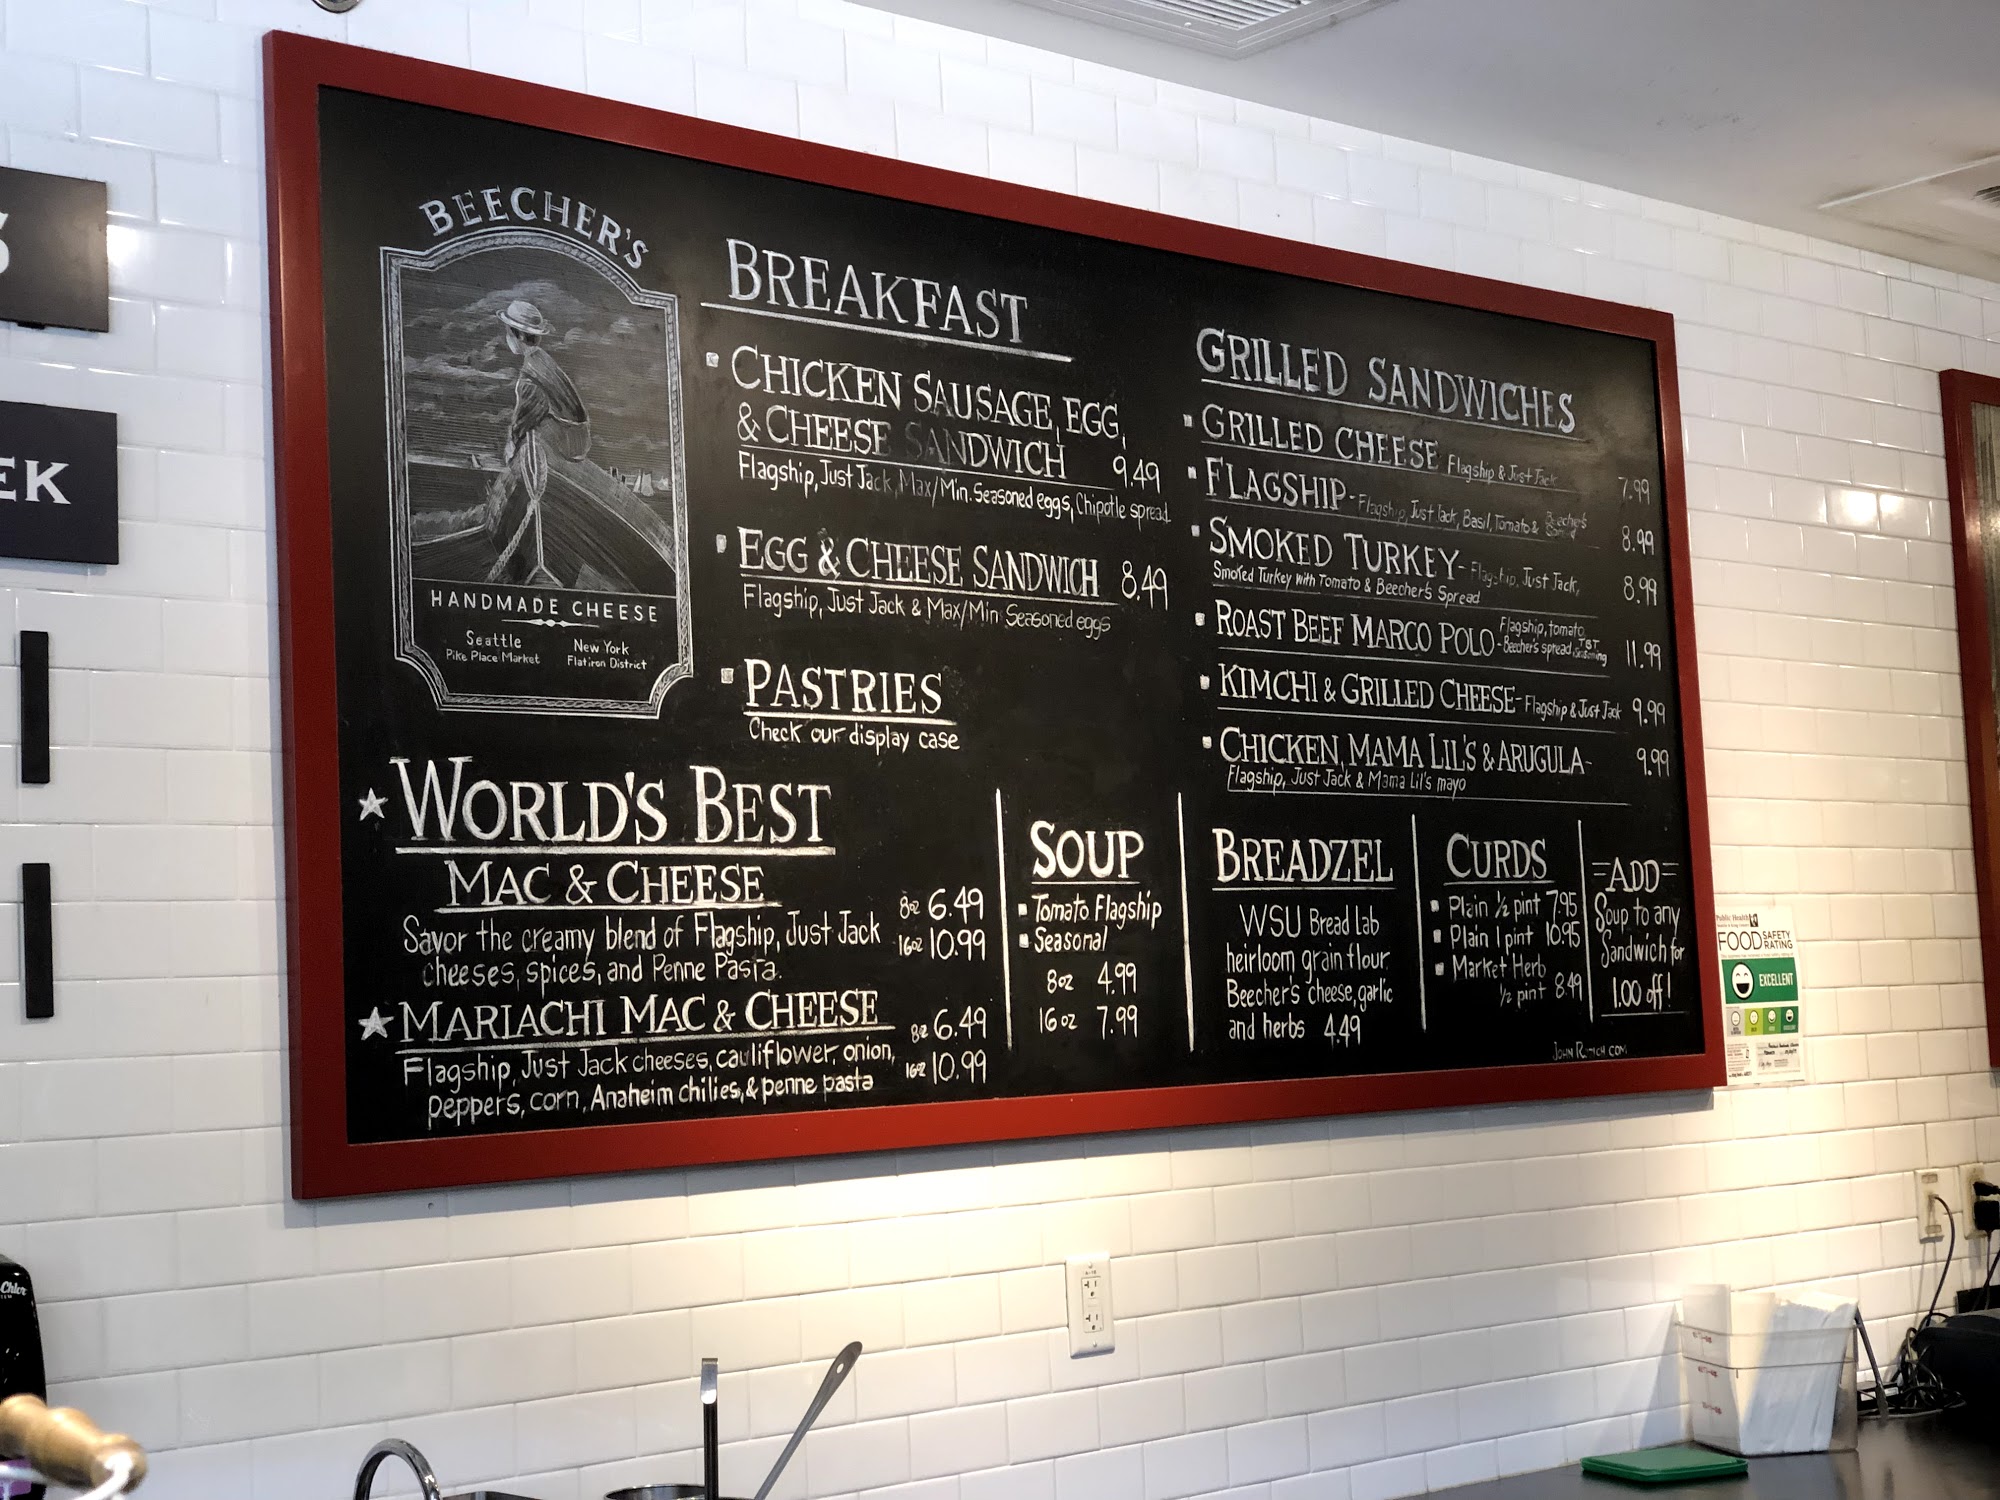 S
EK
BEECHER'S
HANDMADE CHEESE
Seattle
Pike Place Market
New York
Flatiron District
BREAKFAST
CHICKEN SAUSAGE, EGG,
& CHEESE SANDWICH 9.49
Flagship, Just Jack, Max/Min. Seasoned eggs, Chipotle spread
EGG & CHEESE SANDWICH 8.49
Flagship, Just Jack & Max/Min Seasoned eggs
PASTRIES
Check our display case
GRILLED SANDWICHES
GRILLED CHEESE Flagship & Just Jack 7.99
FLAGSHIP - Flagship, Just Jack, Basil, Tomato & Beecher's 8.99
SMOKED TURKEY - Flagship, Just Jack, 8.99
Smoked Turkey with Tomato & Beecher's Spread
ROAST BEEF MARCO POLO - Flagship, tomato, 11.99
Beecher's spread, TBT Seasoning
KIMCHI & GRILLED CHEESE - Flagship & Just Jack 9.99
CHICKEN, MAMA LIL'S & ARUGULA - 9.99
Flagship, Just Jack & Mama Lil's mayo
WORLD'S BEST
MAC & CHEESE
Savor the creamy blend of Flagship, Just Jack
cheeses, spices, and Penne Pasta.
8oz 6.49
16oz 10.99
MARIACHI MAC & CHEESE
Flagship, Just Jack cheeses, cauliflower, onion,
peppers, corn, Anaheim chilies, & penne pasta
8oz 6.49
16oz 10.99
SOUP
Tomato Flagship
Seasonal
8oz 4.99
16oz 7.99
BREADZEL
WSU Bread Lab
heirloom grain flour.
Beecher's cheese, garlic
and herbs 4.49
CURDS
Plain ½ pint 7.95
Plain 1 pint 10.95
Market Herb
½ pint 8.49
=ADD=
Soup to any
Sandwich for
1.00 off!
Public Health
FOOD SAFETY
RATING
EXCELLENT